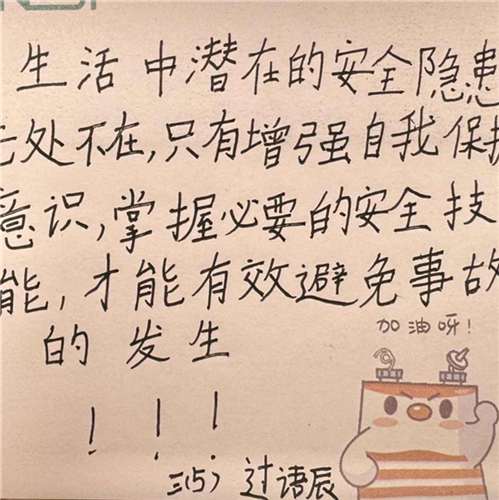 生活中潜在的安全隐患
无处不在,只有增强自我保护
意识,掌握必要的安全技
能,才能有效避免事故
的发生
!!!
加油呀!
三(5) 过语辰